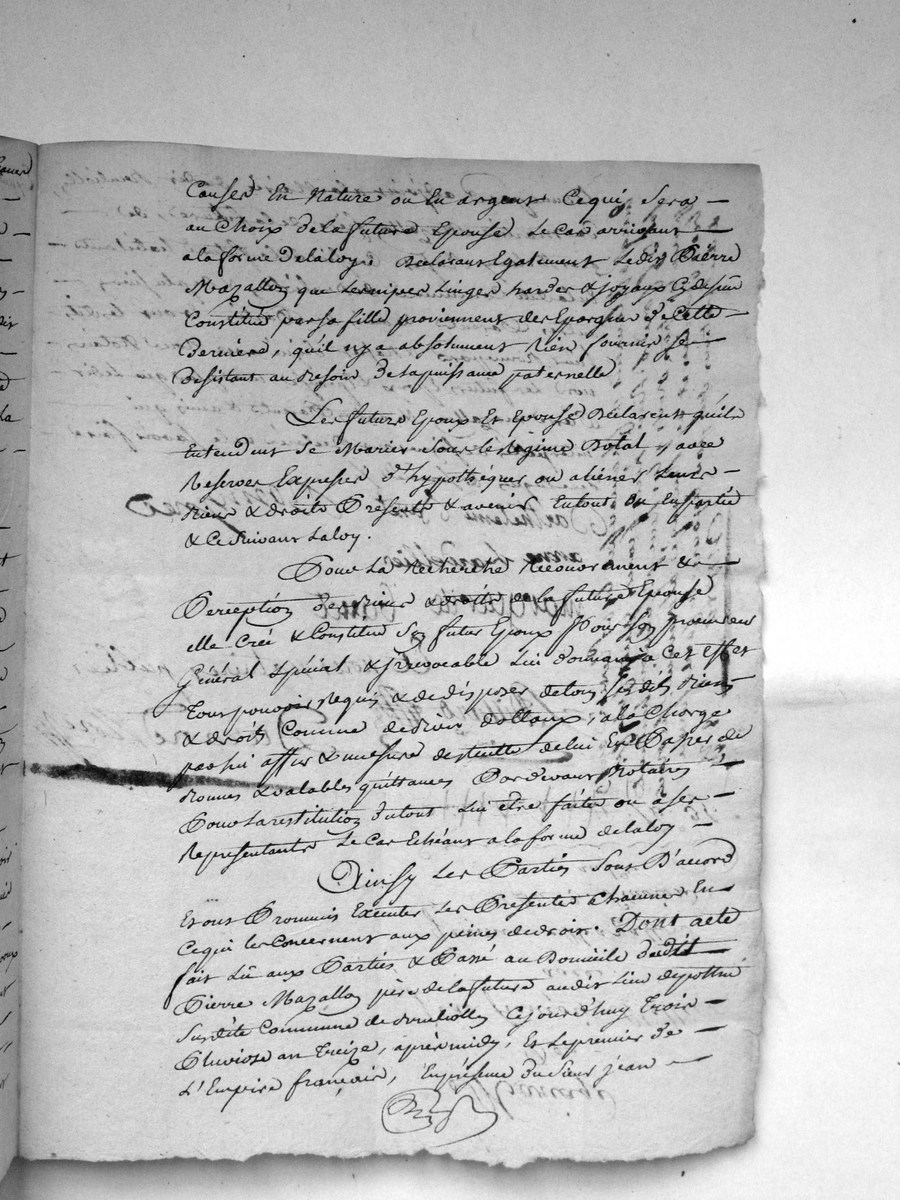 Causes En Nature ou En argent Cequi Sera —
au Choix dela future Epouse Le Cas arrivant —
ala forme delaloy. Declarant Egalement Ledit Pierre
Mazallon que Lesnipes Linges hardes & joyaux Cydessus
Constitué parsa fille proviennent des Epargnes de Cette —
Derniere, qu'il nya absolument Rien fourni Se —
desistant au besoin delapuissance paternelle
Les future Epoux Et Epouse Declarent qu'ils
Entendent Se Marier Sous le Regime Dotal, avec
Reserves Expresses d'hypothéquer ou aliéner Leurs —
Biens & droits Présents & avenirs Entout ou Enpartie
& Ce Suivant Laloy.
Pour La Recherche Recouvrement & —
Perception des biens & droits de la future Epouse
elle Créé & Constitue Son futur Epoux Pour Son procureur
Général Spécial & jrrevocable Lui donnant a Cet effet
Tous pouvoirs Requis & de disposer detous Ses dits Biens
& droits Comme de Biens dottaux, ala Charge
par lui & mesure de de lui En Passer de
Bonnes & valables quittances Pardevant Notaires —
Pour Larestitution dutout Lui être faite ou a Ses —
Représentants Le Cas Echéant ala forme delaloy —
Ainsy Les Parties Sont D'accord
Et ont Promis Executer Les Présentes Chacune En —
Cequi les Concernent aux peines dedroit. Dont acte
fait Lû aux Parties & Passé au Domicile dudit —
Pierre Mazallon père dela future audit Lieu
Susdite Commune de Cejourd'huy Trois —
Pluviose an Treize, après midy, Et Lepremier de —
L'Empire français, Enprésence du Sieur jean —